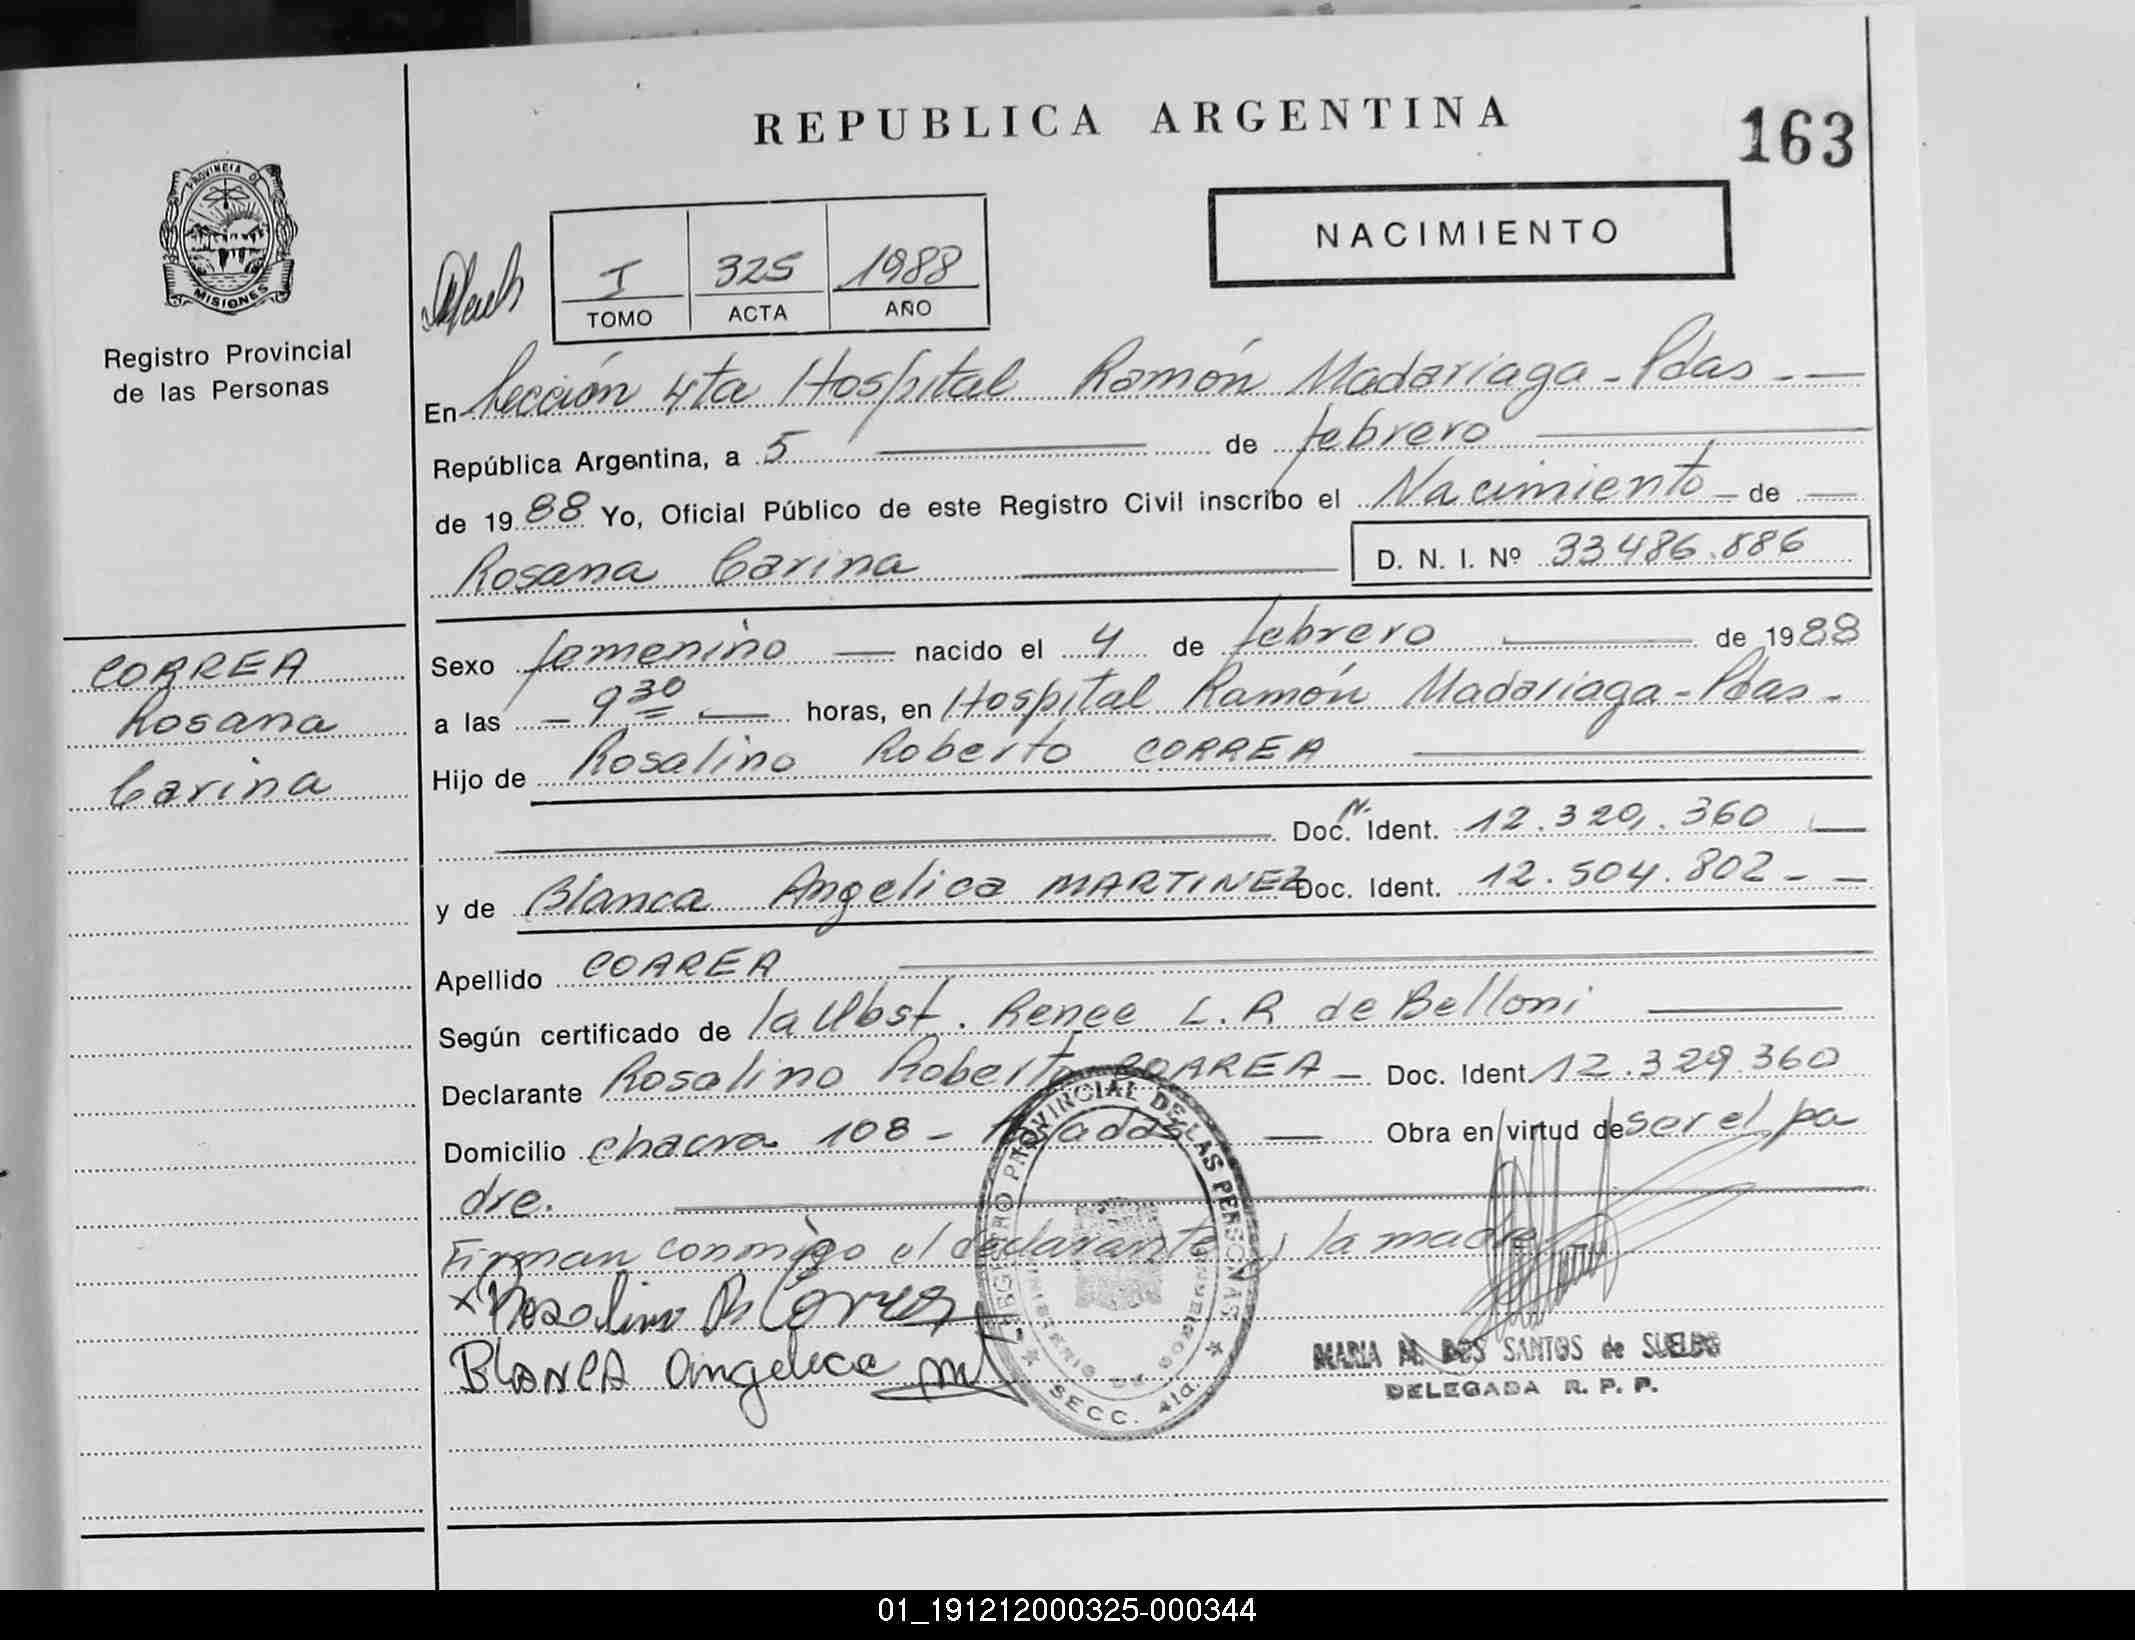 REPUBLICA ARGENTINA
163
PROVINCIA DE
MISIONES
Registro Provincial
de las Personas
NACIMIENTO
I 325 1988
TOMO ACTA AÑO
En Sección 4ta Hospital Ramón Madariaga - Pdas - —
República Argentina, a 5 — de febrero —
de 1988 Yo, Oficial Público de este Registro Civil inscribo el Nacimiento - de —
Rosana Carina — D. N. I. Nº 33486.886
CORREA
Rosana
Carina
Sexo femenino — nacido el 4 de febrero — de 1988
a las - 9 30 — horas, en Hospital Ramón Madariaga - Pdas -
Hijo de Rosalino Roberto CORREA —
— Doc. N. Ident. 12.329.360 —
y de Blanca Angelica MARTINEZ Doc. Ident. 12.504.802 - —
Apellido CORREA —
Según certificado de la Obst. Renee L. R de Belloni —
Declarante Rosalino Roberto CORREA - Doc. Ident. 12.329.360
Domicilio chacra 108 - Posadas — Obra en virtud de ser el pa
dre. —
Firman conmigo el declarante y la madre
x Rosalino R. Correa
BLANCA Angelica
REGISTRO PROVINCIAL DE LAS PERSONAS
MINISTERIO DE GOBIERNO
SECC. 4ta.
MARIA M. DOS SANTOS de SUELDO
DELEGADA R. P. P.
01_191212000325-000344